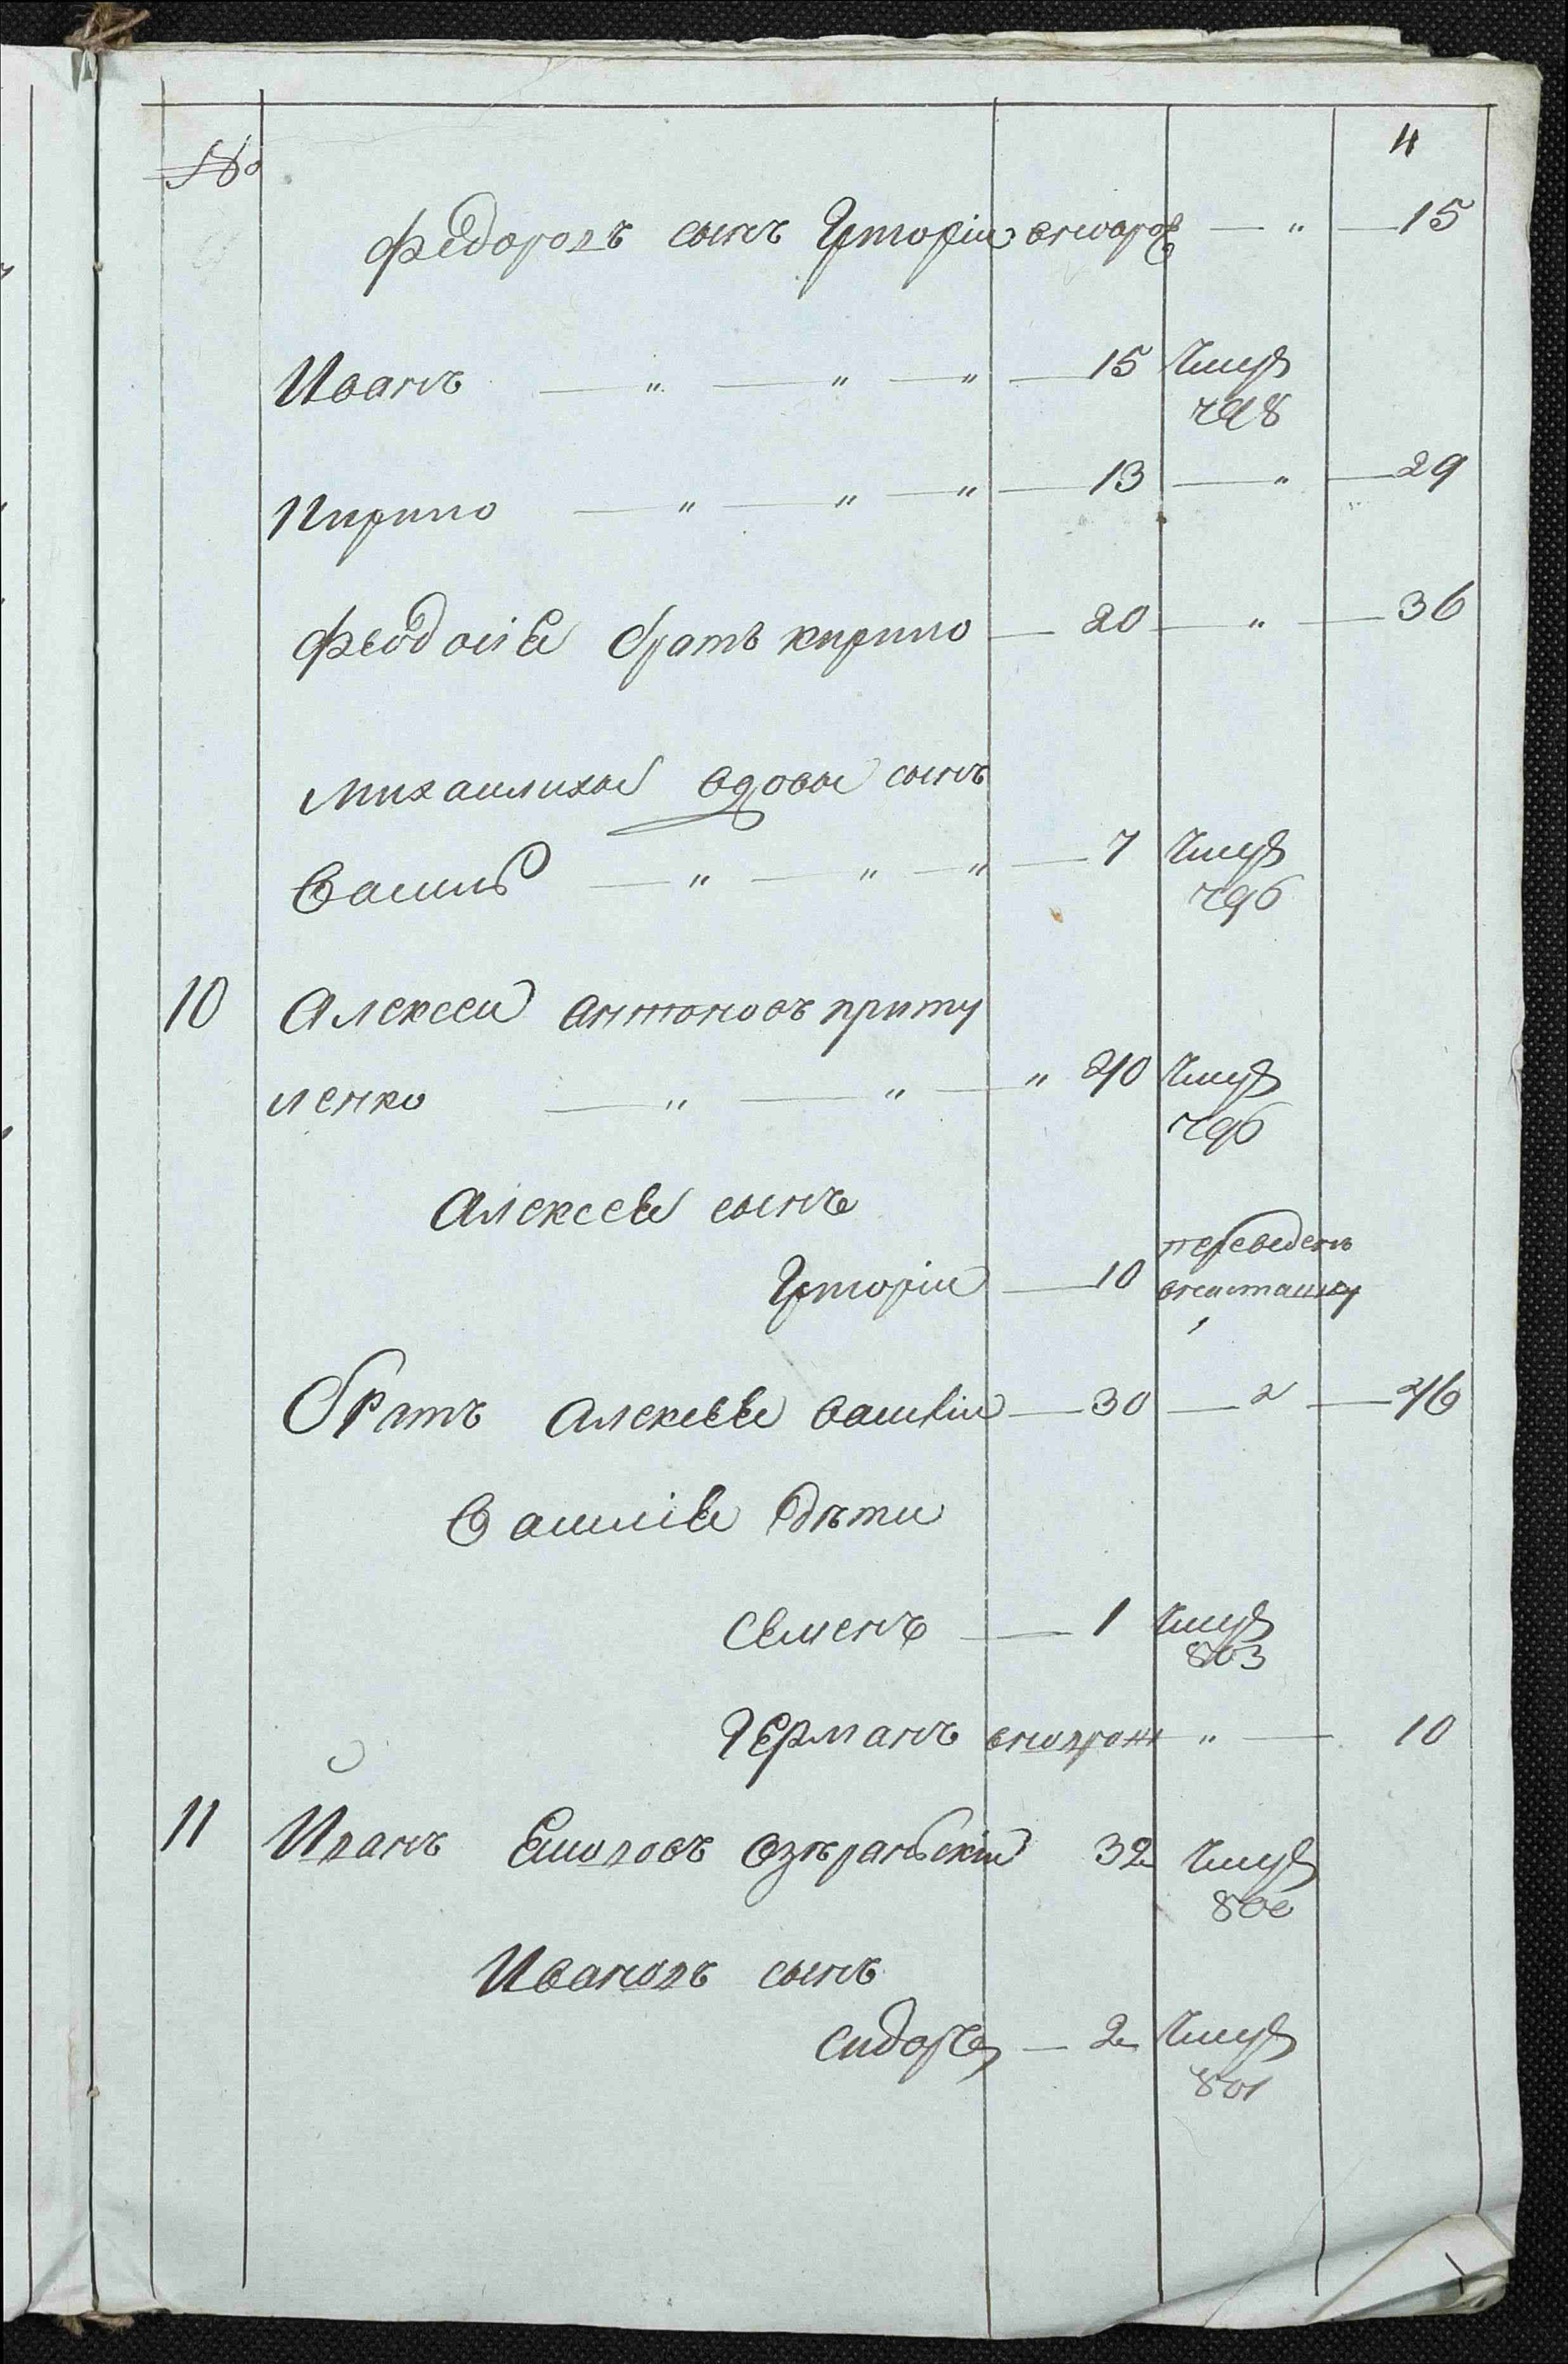 № 4
Федоровъ сынъ Григорiи вновро — " — 15
Иванъ — " — " — " — 15 Умре
798
Кирило — " — " — " — 13 — " — 29
Феодосiевъ братъ кирило — 20 — " — 36
Михаилихы вдовы сынъ
Василь — " — " — " — 7 Умре
796
10 Алексеи антоновъ приту
ленко — " — " — " 40 Умре
796
Алексея сынъ
Григорiи — 10 переведенъ
Братъ Алексея василiи — 30 — " — 46
Василiя дѣти
Семенъ — 1 Умре
803
Германъ вноврож " — 10
11 Иванъ 32 Умре
800
Ивановъ сынъ
Сидоръ — 2 Умре
801